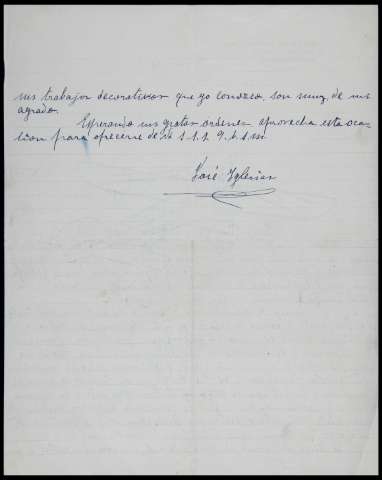 sus trabajos decorativos que yo conozco, son muy de mi
agrado.
Esperando sus gratas ordenes aprovecha esta oca-
sion para ofrecerse de V. s. s. s. q. b. s. m.
José Yglesias